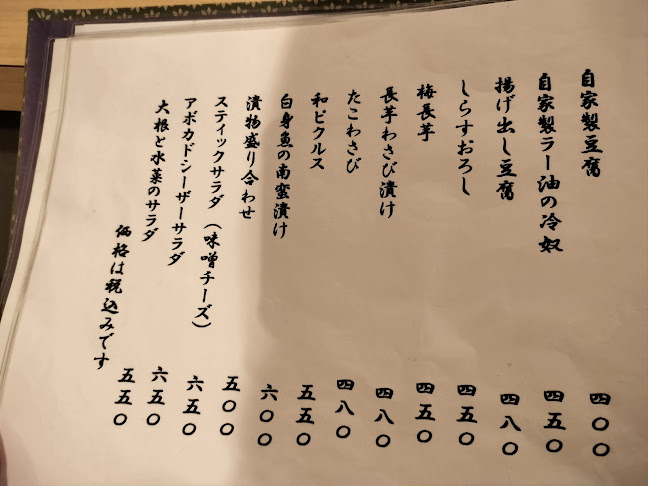 自家製豆腐 四〇〇
自家製ラー油の冷奴 四五〇
揚げ出し豆腐 四八〇
しらすおろし 四五〇
梅長芋 四五〇
長芋わさび漬け 四八〇
たこわさび 四八〇
和ピクルス 五五〇
白身魚の南蛮漬け 六〇〇
漬物盛り合わせ 五〇〇
スティックサラダ（味噌チーズ） 六五〇
アボカドシーザーサラダ 六五〇
大根と水菜のサラダ 五五〇
価格は税込みです